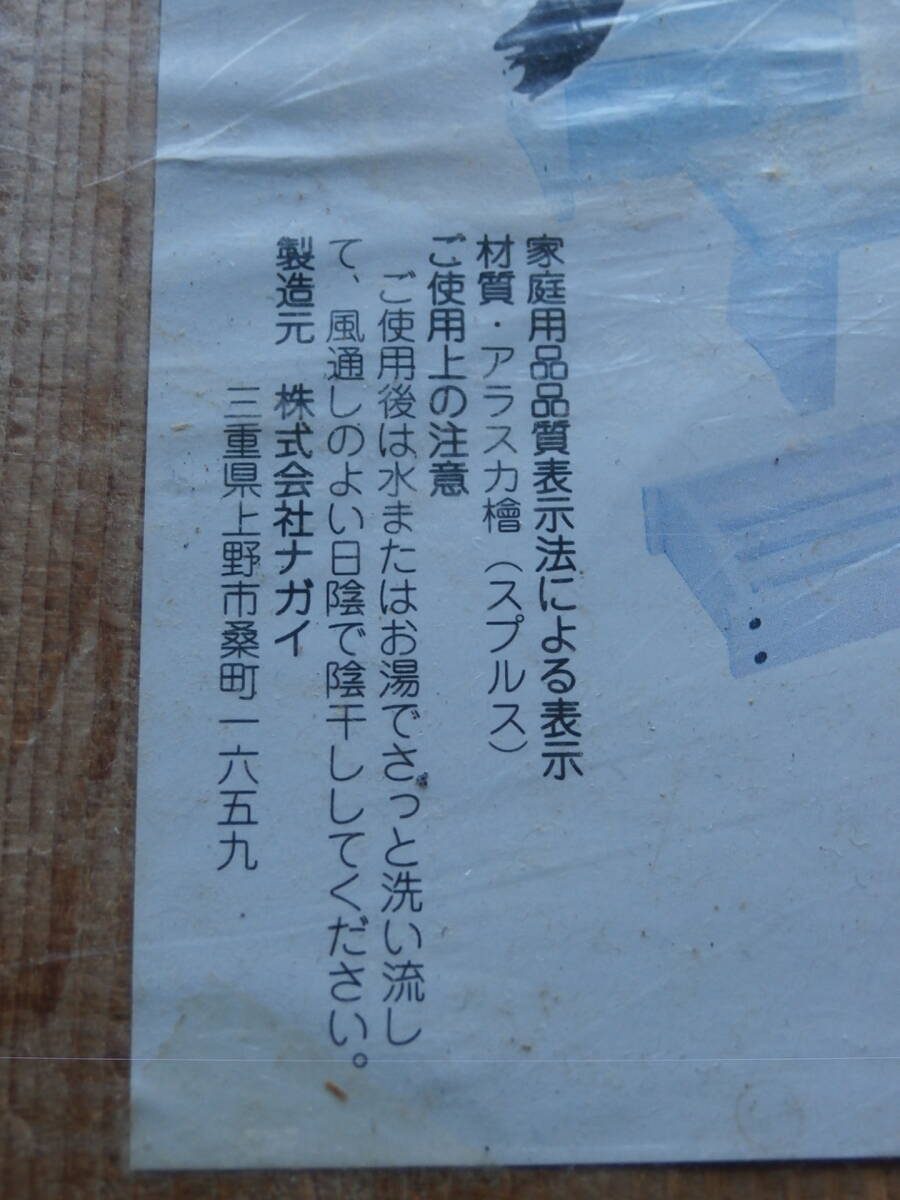 家庭用品品質表示法による表示
材質・アラスカ檜（スプルス）
ご使用上の注意
ご使用後は水またはお湯でさっと洗い流し
て、風通しのよい日陰で陰干ししてください。
製造元　株式会社ナガイ
三重県上野市桑町一六五九